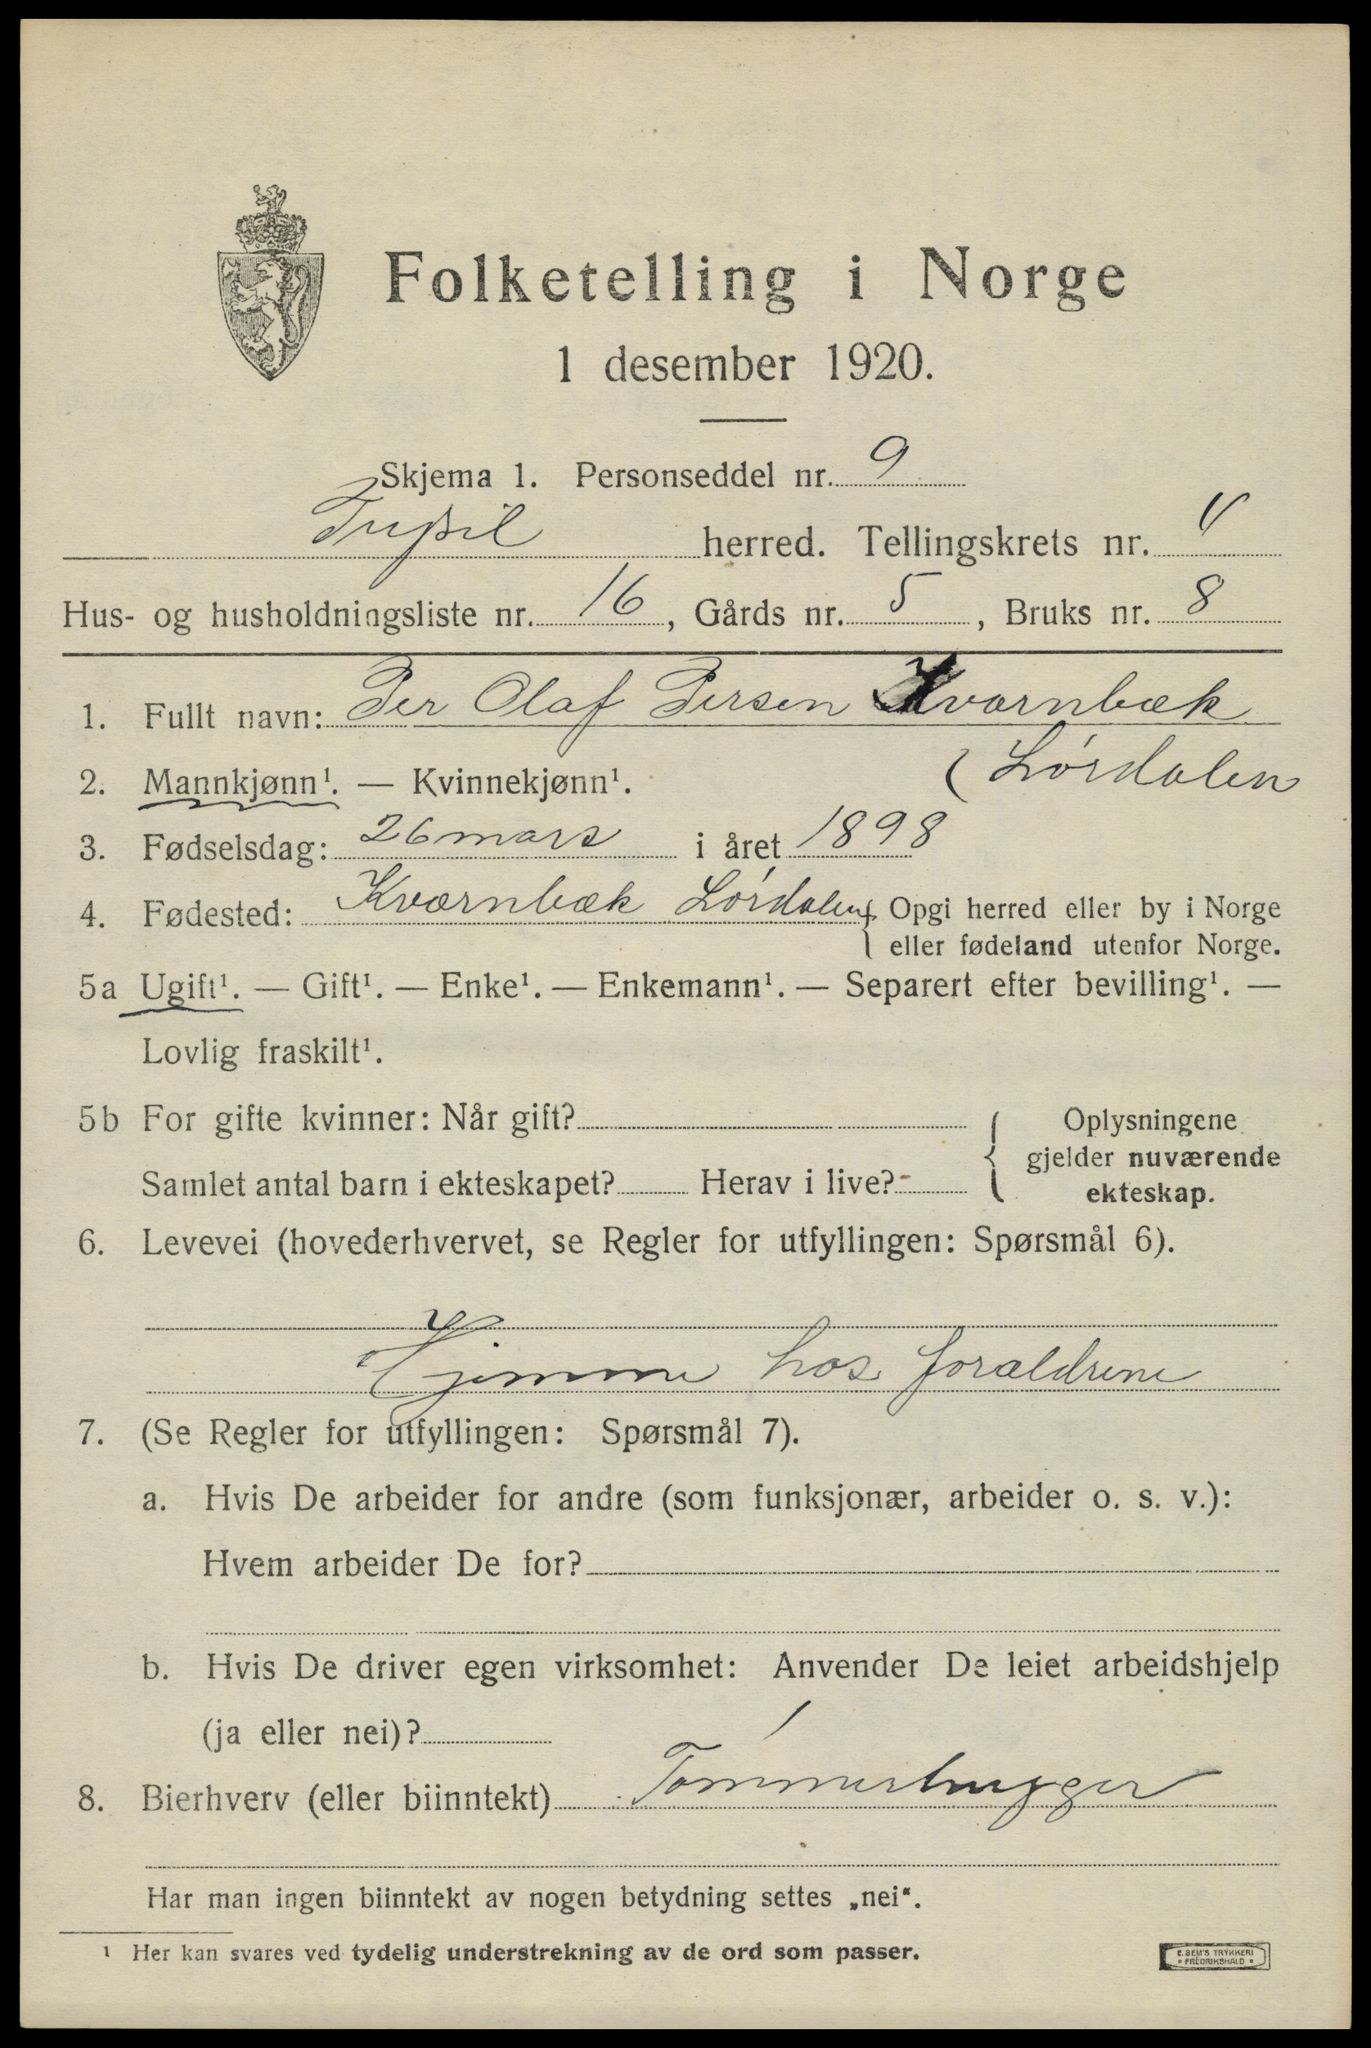 Folketelling i Norge
1 desember 1920.
Skjema 1. Personseddel nr. 9
Trysil herred. Tellingskrets nr. 4
Hus- og husholdningsliste nr. 16, Gårds nr. 5, Bruks nr. 8
1. Fullt navn: Per Olaf Persen Kværnbæk
(Lørdalen
2. Mannkjønn¹. — Kvinnekjønn¹.
3. Fødselsdag: 26 mars i året 1898
4. Fødested: Kværnbæk Lørdalen { Opgi herred eller by i Norge
eller fødeland utenfor Norge.
5a Ugift¹. — Gift¹. — Enke¹. — Enkemann¹. — Separert efter bevilling¹. —
Lovlig fraskilt¹.
5b For gifte kvinner: Når gift? { Oplysningene
gjelder nuværende
Samlet antal barn i ekteskapet? Herav i live? ekteskap.
6. Levevei (hovederhvervet, se Regler for utfyllingen: Spørsmål 6).
Hjemme hos foraldrene
7. (Se Regler for utfyllingen: Spørsmål 7).
a. Hvis De arbeider for andre (som funksjonær, arbeider o. s. v.):
Hvem arbeider De for?
b. Hvis De driver egen virksomhet: Anvender De leiet arbeidshjelp
(ja eller nei)?
8. Bierhverv (eller biinntekt) Tømmerhugger
Har man ingen biinntekt av nogen betydning settes „nei“.
¹ Her kan svares ved tydelig understrekning av de ord som passer.
E. SEM'S TRYKKERI
• FREDRIKSHALD •